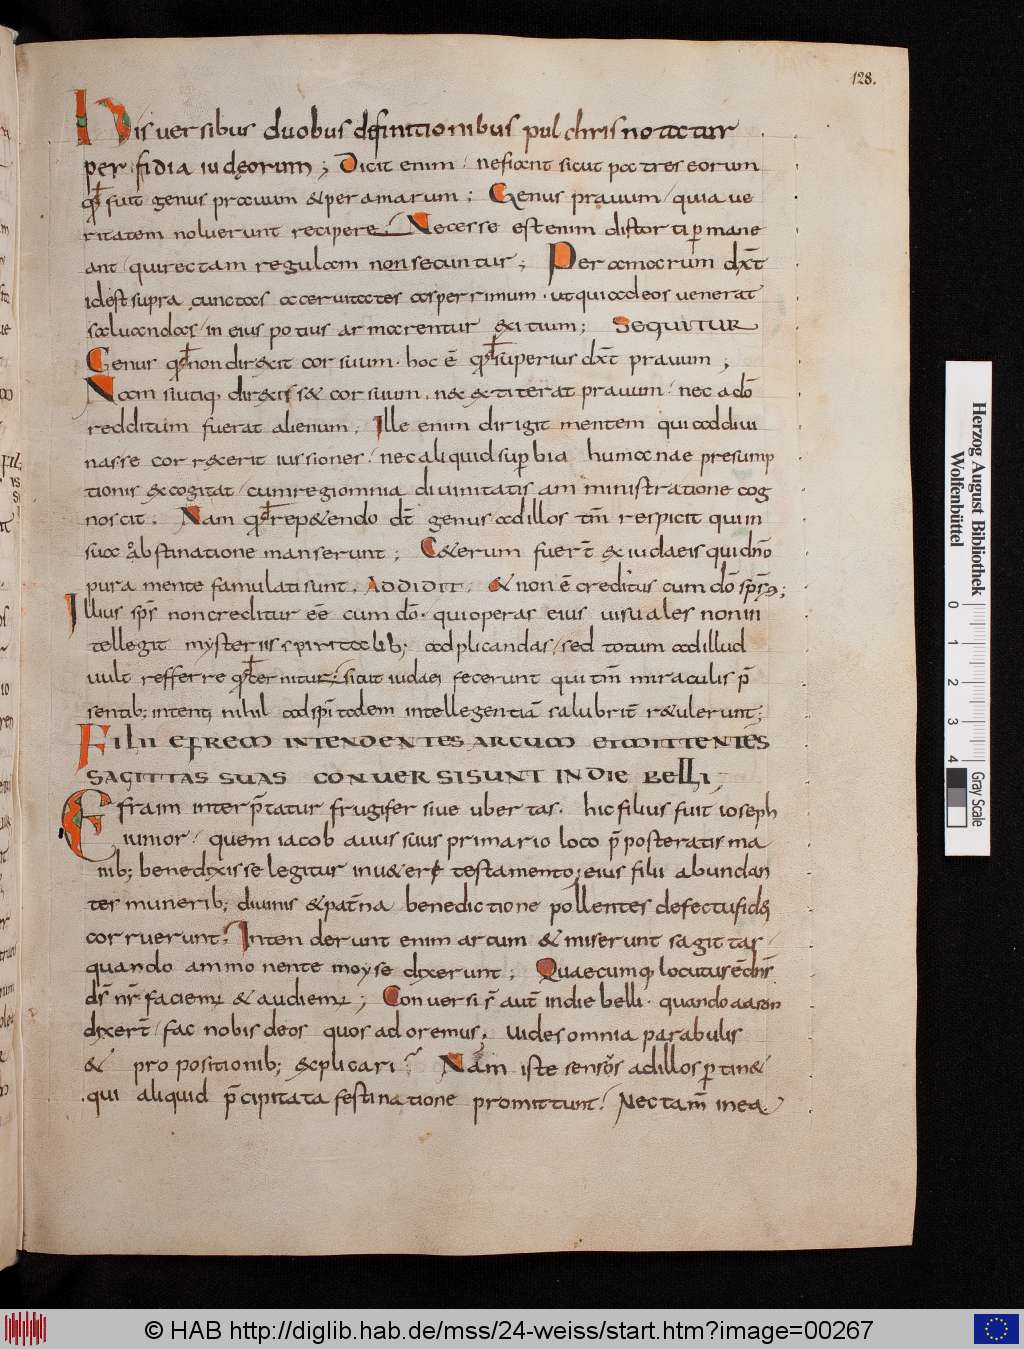 128.
His uersibus duobus definitionibus pulchris notatur
perfidia iudęorum; Dicit enim / ne fiant sicut patres eorum
qđ fuit genus prauum & peramarum; Genus prauum / quia ue
ritatem noluerunt recipere; Necesse est enim distorti p mane
ant / qui rectam regulam non secuntur; Per amarum dx̄t
idest supra cunctas aceruitates asperrimum · ut qui ad eos uenerat
saluandos / in eius potius armarentur exitium; SEQUITUR
Genus qđ non direxit cor suum · hoc ē qđ superius dx̄t prauum;
Nam siutiq direxisset cor suum · nec extiterat prauum / nec a dō
redditum fuerat alienum; Ille enim dirigit mentem qui addiui
nasse correxerit iussiones / nec aliquid supbia humanae presump
tionis excogitat / cum regi omnia diuinitatis amministratione cog
noscit. Nam qđ rep&endo dt̄ genus ad illos tm̄ respicit qui in
sua abstinatione manserunt; C&erum fuer̄t ex iudaeis qui dn̄o
pura mente famulati sunt. ADDIDIT. & non ē creditus cum dō sps̄ eius;
Illius sps̄ non creditur eē cum dō · qui operas eius uisuales non in
tellegit mysteriis spiritalib; adplicandas / sed totum ad illud
uult refferre qđ cernitur; sicut iudaei fecerunt qui tm̄ miraculis p̄
sentib; intenti nihil ad spi̅todem intellegentiā salubrit̄ r&ulerunt;
FILII EFREM INTENDENTES ARCUM EMITTENTES
SAGITTAS SUAS CONUERSI SUNT IN DIE BELLI;
Efraim interp̄tatur frugifer siue ubertas. hic filius fuit ioseph
iunior / quem iacob auus suus primario loco p̄ posteratis ma
nib; benedixisse legitur in u&eri testamento; eius filii abundan
ter munerib; diuinis & pat̄na benedictione pollentes defectu fidei
corruerunt; Intenderunt enim arcum & miserunt sagittas /
quando ammonente moyse dixerunt; Quaecumq locutus ē dns̄
ds̄ nr̄ faciem & audiem; Conuersi s̄ aut̄ in die belli · quando aaron
dixer̄t / fac nobis deos quos adoremus; Uides omnia parabulis
& propositionib; explicari; Nam iste sensus ad illos p tin&
qui aliquid p̄cipitata festinatione promittunt / Nec tam̄ in ea
Herzog August Bibliothek
Wolfenbüttel
0 1 2 3 4
Gray Scale
© HAB http://diglib.hab.de/mss/24-weiss/start.htm?image=00267